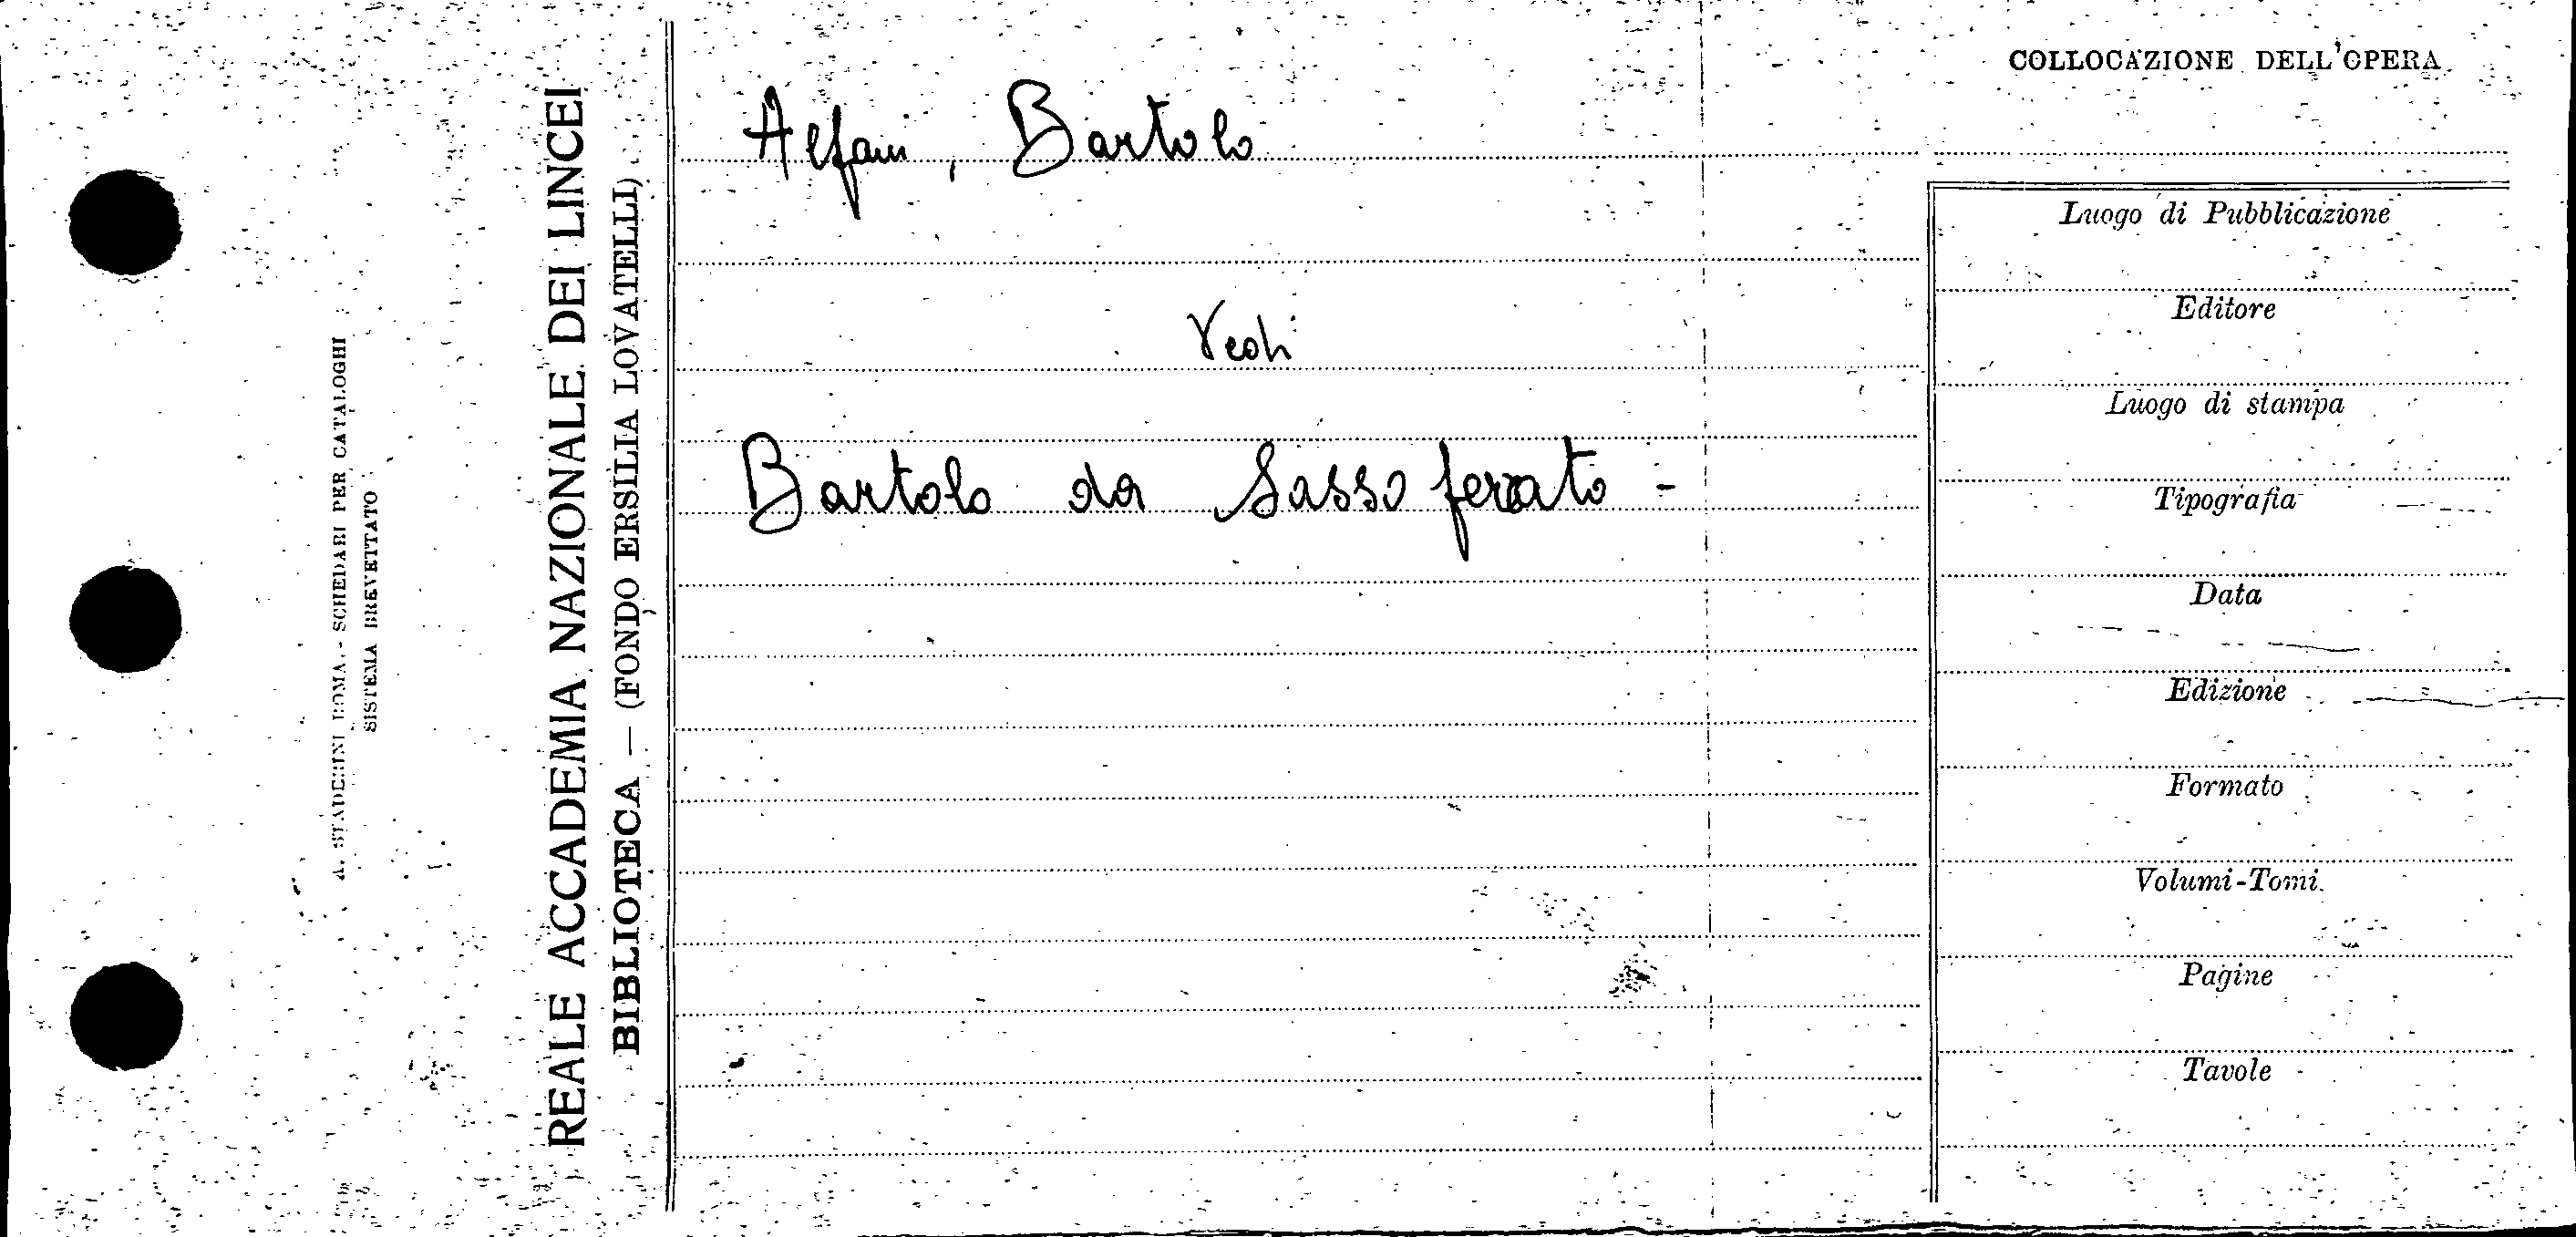 A. STADERINI ROMA. - SCHEDARI PER CATALOGHI
SISTEMA BREVETTATO
REALE ACCADEMIA NAZIONALE DEI LINCEI
BIBLIOTECA — (FONDO ERSILIA LOVATELLI)
Alfani, Bartolo
Vedi
Bartolo da Sassoferrato -
COLLOCAZIONE DELL'OPERA
Luogo di Pubblicazione
Editore
Luogo di stampa
Tipografia
Data
Edizione
Formato
Volumi-Tomi
Pagine
Tavole